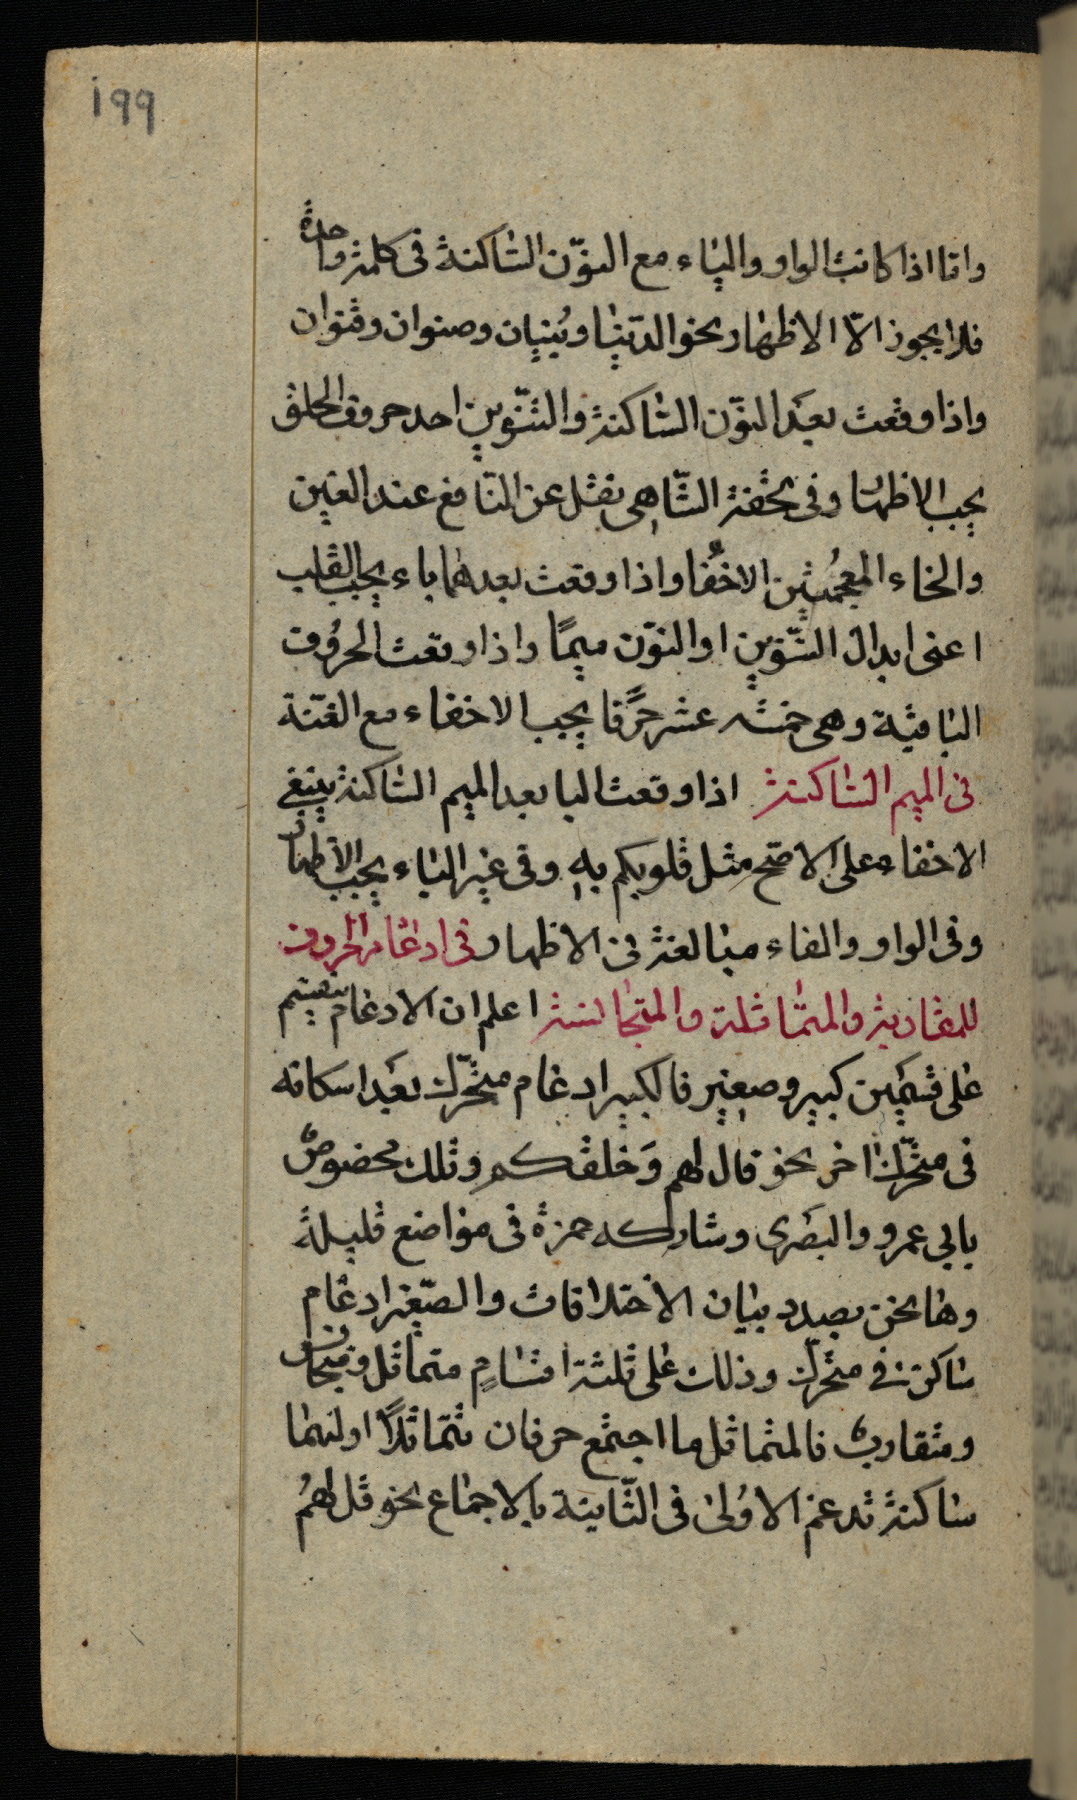 ١٩٩
واما اذا كانت الواو والياء مع النوّن الساكنة فى كلمة واحدة
فلا يجوز الّا الاظهار نحو الدّنيا وبُنيان وصنوان وقنوان
واذا وقعت بعَد النوّن الساكنة والتنّوين احد حروف الحلق
يجب الاظهار وفى تحفة الشّاهى نقل عن النّافع عند الغين
والخاء المعجمُتين الاخُفا واذا وقعت بعدهما باء يجب القلب
اعنى ابدال التنّوين او النوّن ميمًا واذا وقعت الحرُوف
الباقية وهى خمسة عشر حرًفا يجب الاخفاء مع الغنّة
فى الميم الساكنة اذا وقعت البا بعد الميم الساكنة ينبغى
الاخفاء على الاصّح مثل قلوبكم بهِ وفى غير الباء يجب الاظهار
وفى الواو والفاء مبالغة فى الاظهار فى ادغام الحروف
للمقاربة والمتماثلة والمتجانسة اعلم ان الادغام ينقسم
على قسمَين كبير وصغير فالكبير ادغام متحّرك بعَد اسكانه
فى متحّرك اخر نحو قال لهم وَخلقكم وذلك مخصوصٌ
بابى عمرو والبصَرى وشاركه حمزة فى مواضع قليلة
وها نحن بصدد بيان الاختلافات والصّغير ادغام
ساكن فى متحّرك وذلك على ثلثة اقسامٍ متماثل ومتجانس
ومتقاربٌ فالمتماثل ما اجتمع حرفان تتماثلًا اولهما
ساكنة تدغم الاوُلى فى الثّانية بالاجماع نحو قل لهُم